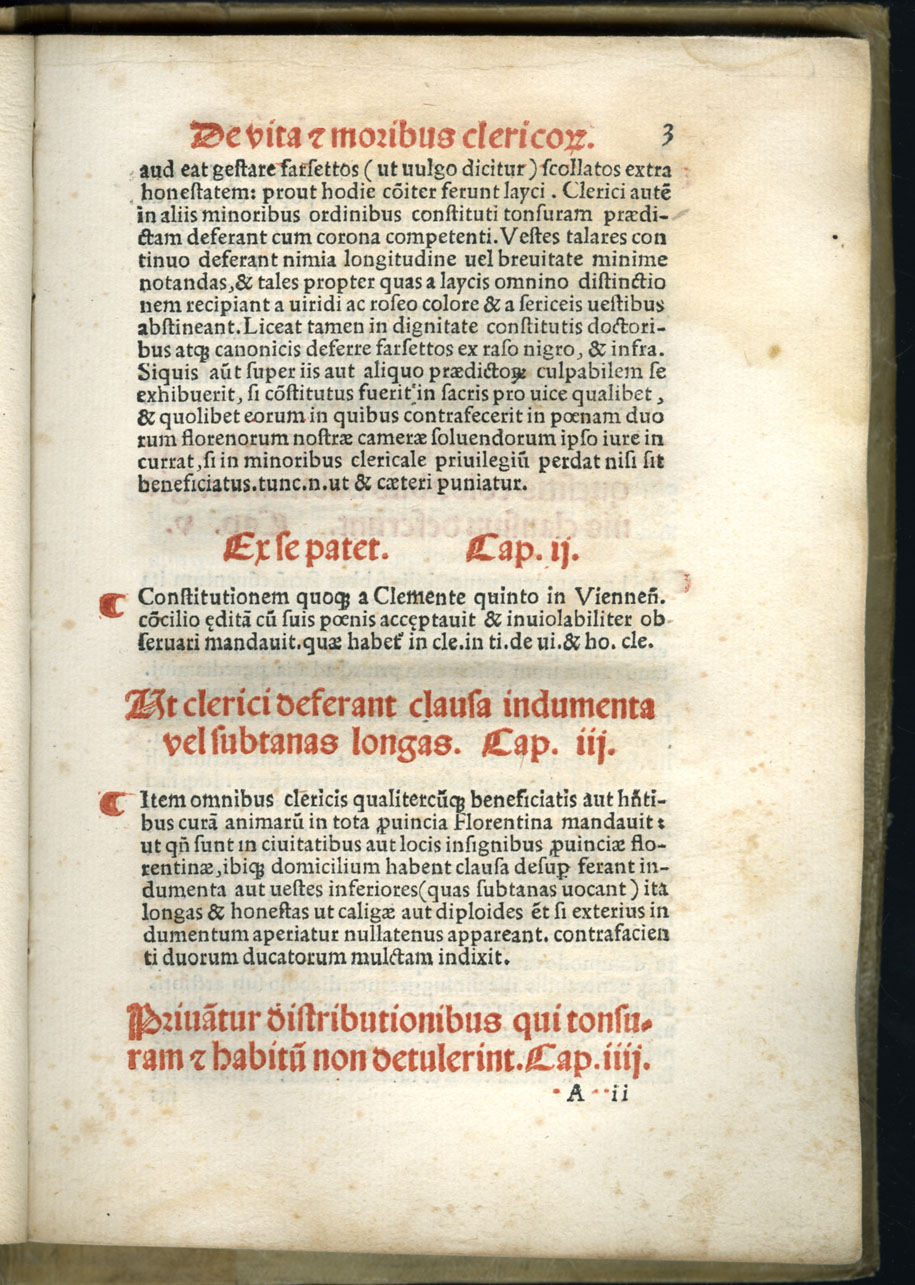 De vita ⁊ moribus clericoꝝ. 3
aud eat geſtare farſettos ( ut uulgo dicitur ) ſcollatos extra
honeſtatem: prout hodie cōiter ferunt layci . Clerici autē
in aliis minoribus ordinibus conſtituti tonſuram prædi-
ctam deferant cum corona competenti. Veſtes talares con
tinuo deferant nimia longitudine uel breuitate minime
notandas,& tales propter quas a laycis omnino diſtinctio
nem recipiant a uiridi ac roſeo colore & a ſericeis ueſtibus
abſtineant. Liceat tamen in dignitate conſtitutis doctori-
bus atq; canonicis deferre farſettos ex raſo nigro, & infra.
Siquis aūt ſuper iis aut aliquo prædictoꝝ culpabilem ſe
exhibuerit, ſi cōſtitutus fuerit in ſacris pro uice qualibet ,
& quolibet eorum in quibus contrafecerit in pœnam duo
rum florenorum noſtræ cameræ ſoluendorum ipſo iure in
currat,ſi in minoribus clericale priuilegiū perdat niſi ſit
beneficiatus.tunc.n.ut & cæteri puniatur.
Ex ſe patet. Cap. ij.
¶ Conſtitutionem quoq; a Clemente quinto in Vienneñ.
cōcilio ędita cū ſuis pœnis accęptauit & inuiolabiliter ob
ſeruari mandauit.quæ habet᷑ in cle.in ti.de ui.& ho. cle.
Ut clerici deferant clauſa indumenta
vel ſubtanas longas. Cap. iij.
¶ Item omnibus clericis qualitercūq; beneficiatis aut hñti-
bus curā animarū in tota ꝓuincia Florentina mandauit :
ut qñ ſunt in ciuitatibus aut locis inſignibus ꝓuinciæ flo-
rentinæ,ibiq; domicilium habent clauſa deſuꝑ ferant in-
dumenta aut ueſtes inferiores(quas ſubtanas uocant ) ita
longas & honeſtas ut caligæ aut diploides ēt ſi exterius in
dumentum aperiatur nullatenus appareant. contrafacien
ti duorum ducatorum mulctam indixit.
Priuātur diſtributionibus qui tonſu-
ram ⁊ habitū non detulerint. Cap. iiij.
A ii